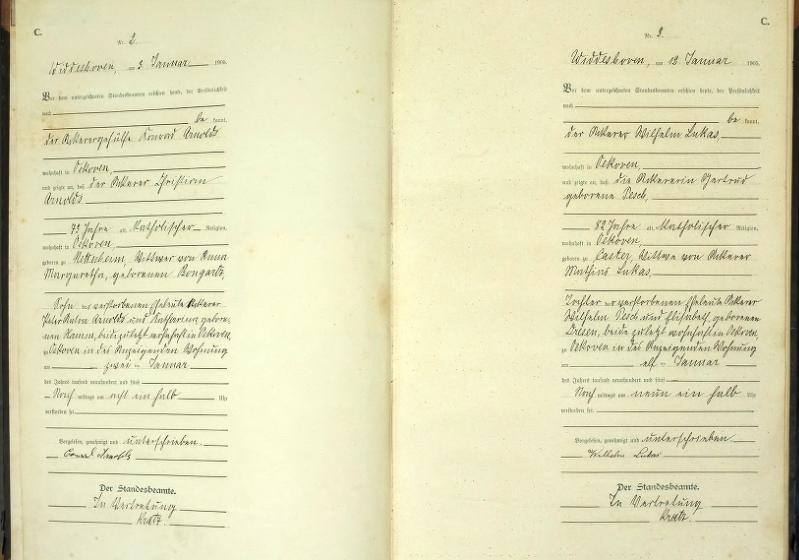 C.
Nr. 2.
Widdeshoven, am 3. Januar 1905.
Vor dem unterzeichneten Standesbeamten erschien heute, der Persönlichkeit
nach
be kannt,
der Ackerergehülfe Konrad Arnolds
wohnhaft in Oekoven,
und zeigte an, daß der Ackerer Christian
Arnolds
73 Jahre alt, katholischer Religion,
wohnhaft in Oekoven,
geboren zu Wittwer von Anna
Margaretha, geborenen Bongartz,
Sohn der verstorbenen Eheleute Ackerer
Peter Anton Arnolds und Katharina gebore-
nen Hamm, beide zuletzt wohnhaft in Oekoven,
zu Oekoven in des Anzeigenden Wohnung
am zwei ten Januar
des Jahres tausend neunhundert und fünf
Nach mittags um acht ein halb Uhr
verstorben sei.
Vorgelesen, genehmigt und unterschrieben.
Conrad Arnolds
Der Standesbeamte.
In Vertretung
C.
Nr. 3.
Widdeshoven, am 12. Januar 1905.
Vor dem unterzeichneten Standesbeamten erschien heute, der Persönlichkeit
nach
be kannt,
der Ackerer Wilhelm Lukas,
wohnhaft in Oekoven,
und zeigte an, daß die Ackererin Gertrud
geborene Pesch,
82 Jahre alt, katholischer Religion,
wohnhaft in Oekoven,
geboren zu Caster, Wittwe von Ackerer
Mathias Lukas,
Tochter der verstorbenen Eheleute Ackerer
Wilhelm Pesch und Elisabeth geborenen
beide zuletzt wohnhaft in Oekoven,
zu Oekoven in des Anzeigenden Wohnung
am elf ten Januar
des Jahres tausend neunhundert und fünf
Nach mittags um neun ein halb Uhr
verstorben sei.
Vorgelesen, genehmigt und unterschrieben
Wilhelm Lukas
Der Standesbeamte.
In Vertretung